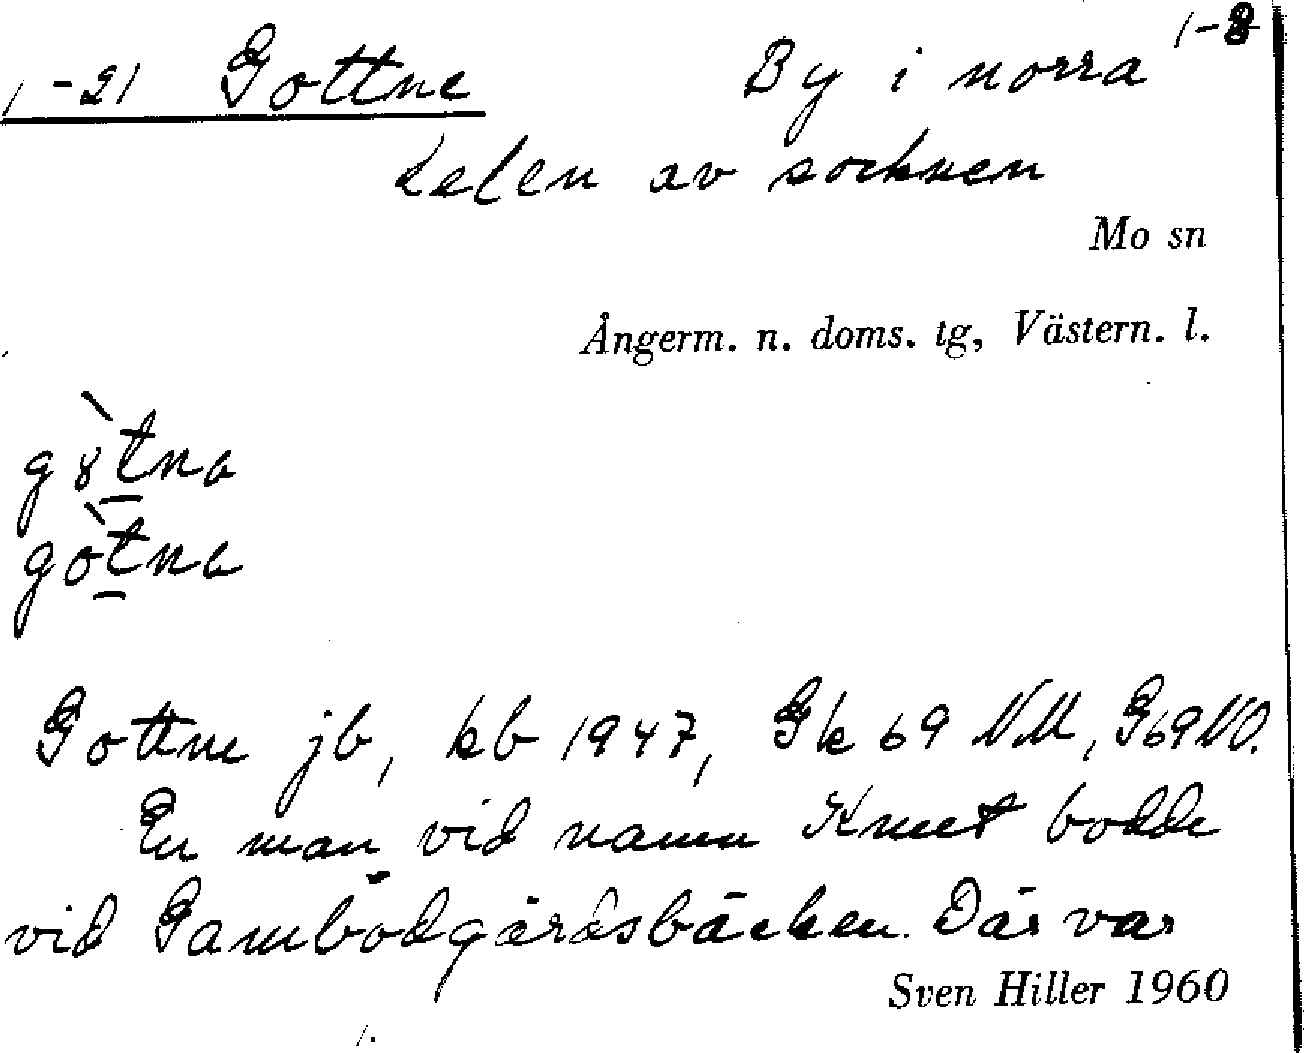 1-8
1-21 Gottne By i norra
delen av socknen
Mo sn
Ångerm. n. doms. tg, Västern. l.
gòtna
Gottne jb, kb 1947, Gk 69 NM, G69NO.
En man vid namn Knut bodde
vid Gambodgärdsbäcken. Där var
Sven Hiller 1960
1.